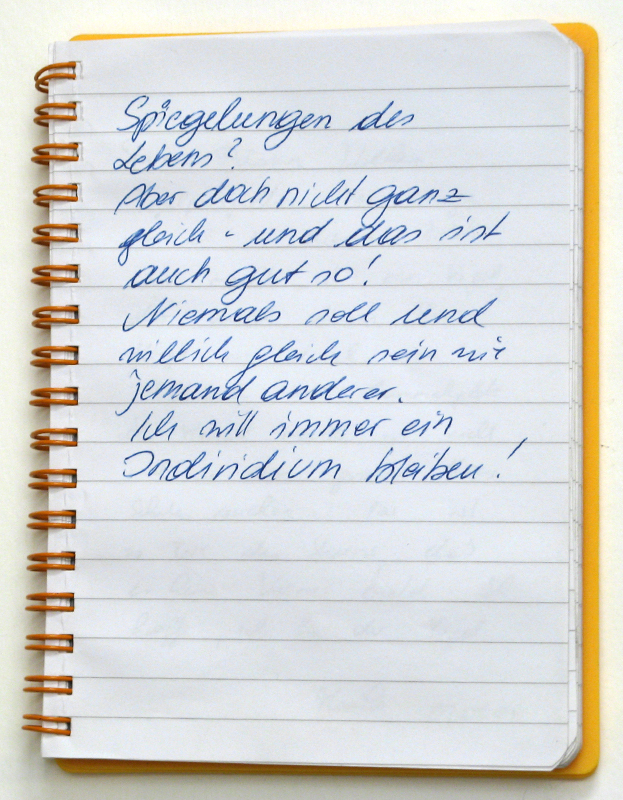 Spiegelungen des
Lebens?
Aber doch nicht ganz
gleich - und das ist
auch gut so!
Niemals soll und
will ich gleich sein wie
jemand anderer.
Ich will immer ein
Individium bleiben!